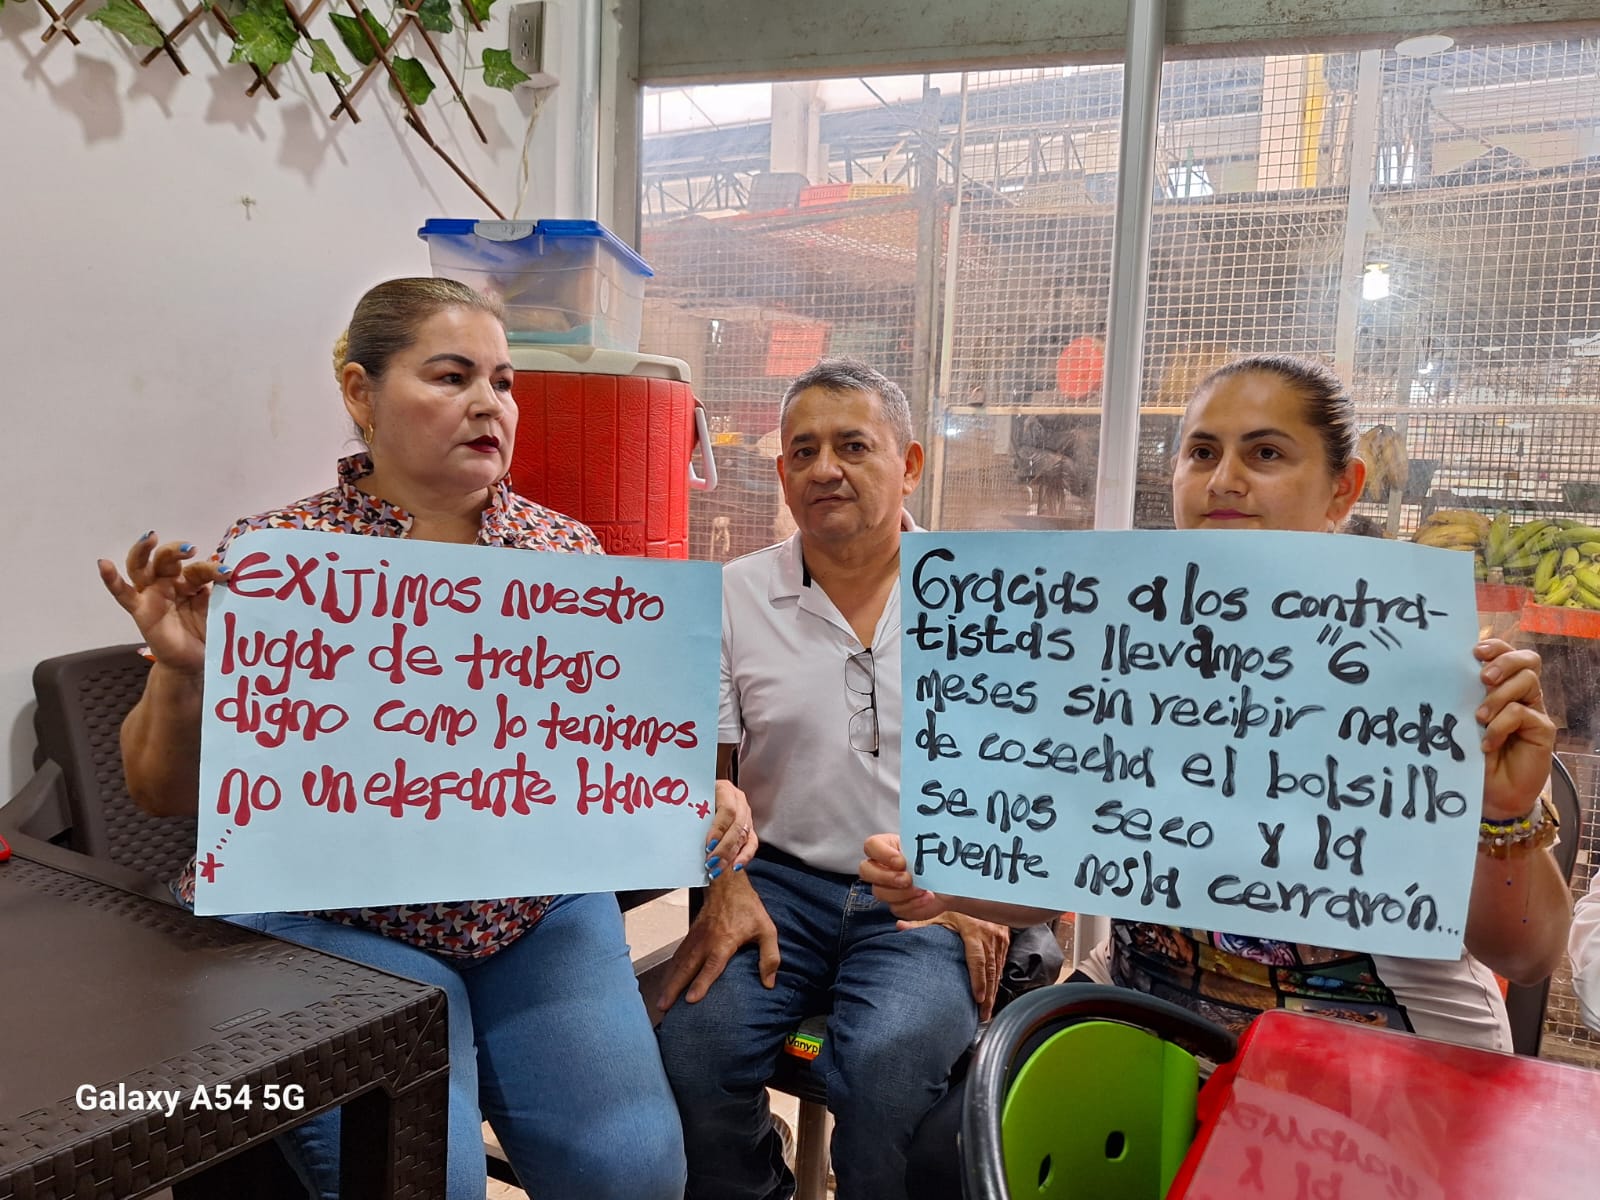 EXIJIMOS nuestro
lugar de trabajo
digno como lo teniamos
no un elefante blanco..
Gracias a los contra-
tistas llevamos "6"
meses sin recibir nada
de cosecha el bolsillo
se nos seco y la
Fuente nosla cerrarón...
Vanyp
Galaxy A54 5G